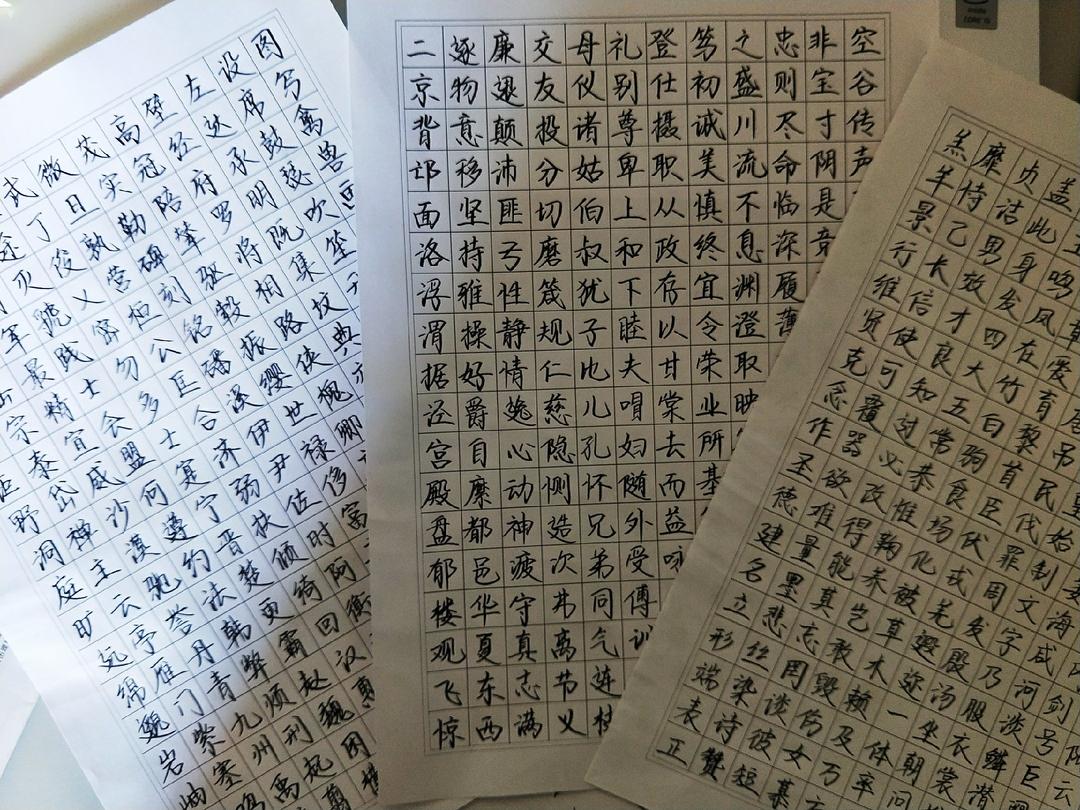 剑号巨
海咸河淡鳞潜
始制文字乃服衣裳
民伐罪周发殷汤坐朝问
爱育黎首臣伏戎羌遐迩一体率
鸣凤在竹白驹食场化被草木赖及万
盖此身发四大五常恭惟鞠养岂敢毁伤女慕
贞洁男效才良知过必改得能莫忘罔谈彼短
靡恃己长信使可覆器欲难量墨悲丝染诗赞
羔羊景行维贤克念作圣德建名立形端表正
空谷传声
非宝寸阴是竞
忠则尽命临深履薄
之盛川流不息渊澄取映
笃初诚美慎终宜令荣业所基
登仕摄职从政存以甘棠去而益咏
礼别尊卑上和下睦夫唱妇随外受傅训
母仪诸姑伯叔犹子比儿孔怀兄弟同气连枝
交友投分切磨箴规仁慈隐恻造次弗离节义
廉退颠沛匪亏性静情逸心动神疲守真志满
逐物意移坚持雅操好爵自縻都邑华夏东西
二京背邙面洛浮渭据泾宫殿盘郁楼观飞惊
图写禽兽画
设席鼓瑟吹笙
左达承明既集坟典亦
壁经府罗将相路侠槐卿
高冠陪辇驱毂振缨世禄侈富
茂实勒碑刻铭磻溪伊尹佐时阿衡
微旦孰营桓公匡合济弱扶倾绮回汉惠
武丁俊乂密勿多士寔宁晋楚更霸赵魏困横
途灭虢践土会盟何遵约法韩弊烦刑起翦
军最精宣威沙漠驰誉丹青九州禹
宗泰岱禅主云亭雁门紫塞鸡
野洞庭旷远绵邈岩岫